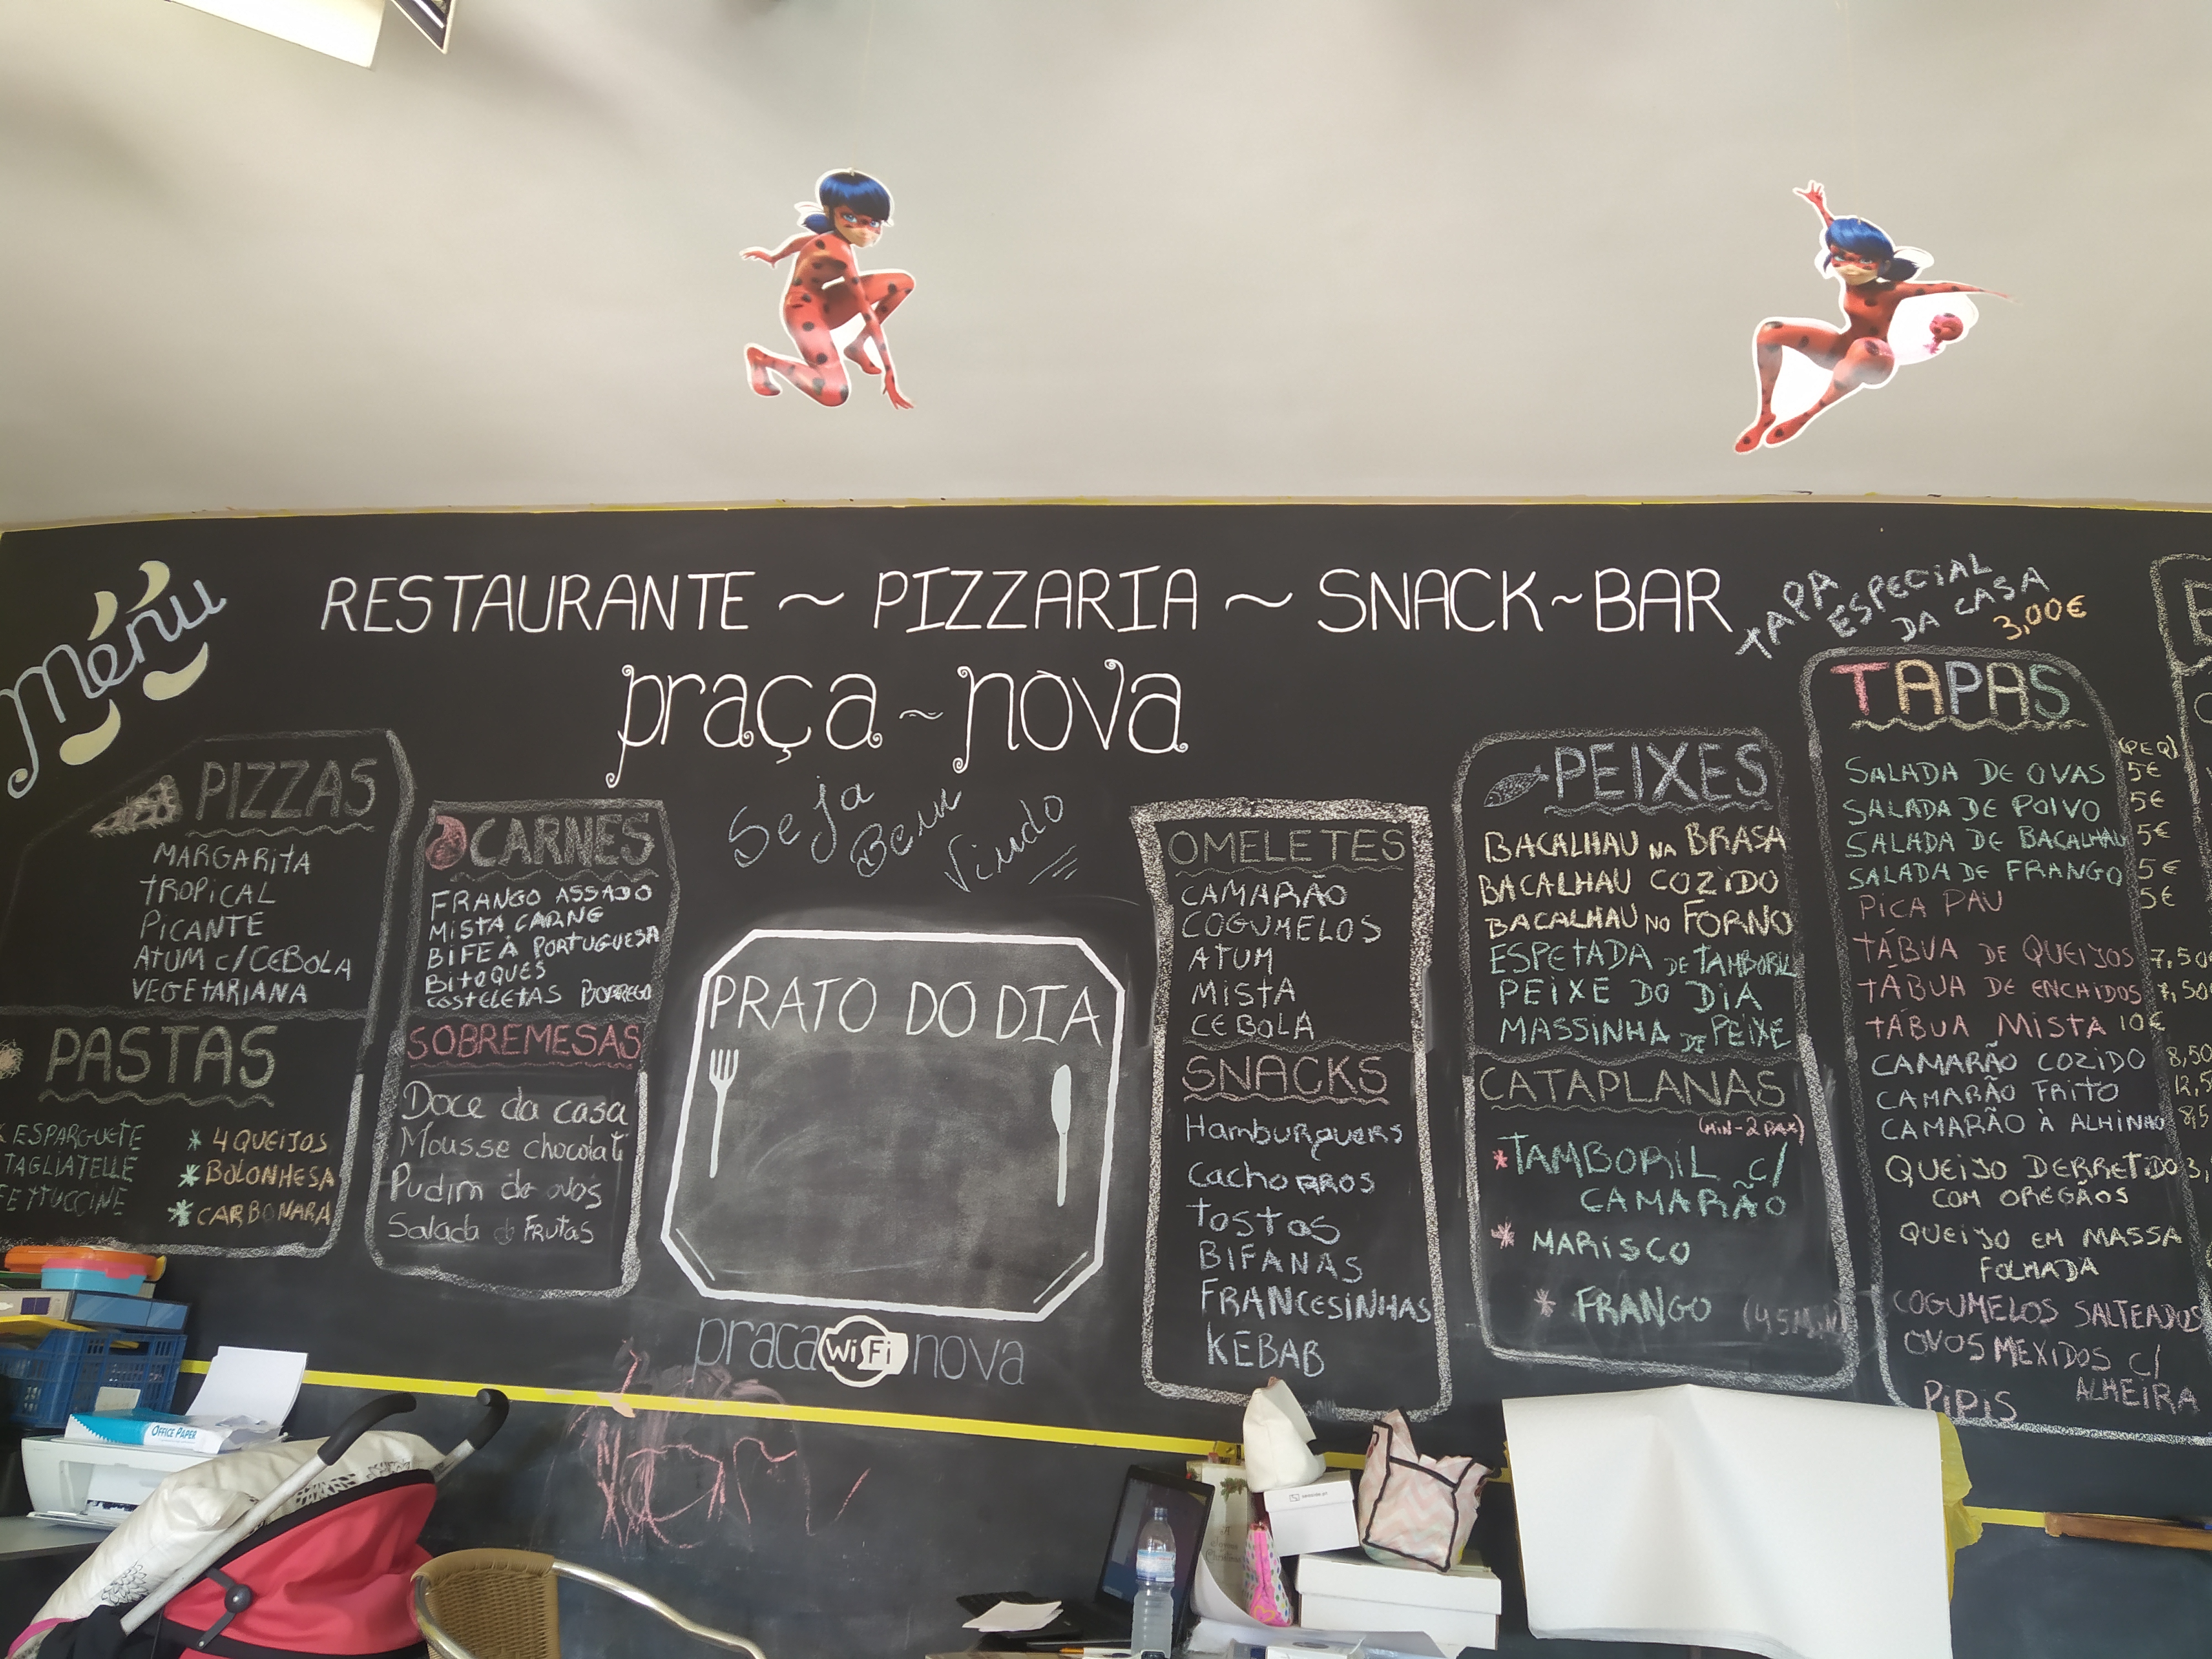 Menu
RESTAURANTE ~ PIZZARIA ~ SNACK~BAR
praça ~ nova
Seja
Bem
Vindo
PIZZAS
MARGARITA
TROPICAL
PICANTE
ATUM C/CEBOLA
VEGETARIANA
PASTAS
ESPARGUETE
TAGLIATELLE
FETTUCCINE
* 4 QUEIJOS
* BOLONHESA
* CARBONARA
CARNES
FRANGO ASSADO
MISTA CARNE
BIFE À PORTUGUESA
BitoQUES
COSTELETAS BORREGO
SOBREMESAS
Doce da casa
Mousse chocolate
Pudim de ovos
Salada de Frutas
PRATO DO DIA
praca WiFi nova
OMELETES
CAMARÃO
COGUMELOS
ATUM
MISTA
CEBOLA
SNACKS
Hamburguers
CachoRROS
tostas
BIFANAS
FRANCESINHAS
KEBAB
PEIXES
BACALHAU NA BRASA
BACALHAU COZIDO
BACALHAU NO FORNO
ESPETADA DE TAMBORIL
PEIXE DO DIA
MASSINHA DE PEIXE
CATAPLANAS
(MIN-2 PAX)
* TAMBORIL C/
CAMARÃO
* MARISCO
* FRANGO (45MIN)
TAPA
ESPECIAL
DA CASA
3,00€
TAPAS
(PEQ)
SALADA DE OVAS 5€
SALADA DE POLVO 5€
SALADA DE BACALHAU 5€
SALADA DE FRANGO 5€
PICA PAU 5€
TÁBUA DE QUEIJOS 7,50€
TÁBUA DE ENCHIDOS 7,50
TÁBUA MISTA 10€
CAMARÃO COZIDO 8,50
CAMARÃO FRITO 12,5
CAMARÃO À ALHINHO 8,5
QUEIJO DERRETIDO 3,
COM OREGÃOS
QUEIJO EM MASSA
FOLHADA
COGUMELOS SALTEADOS
OVOS MEXIDOS C/
ALHEIRA
PIPIS
OFFICE PAPER